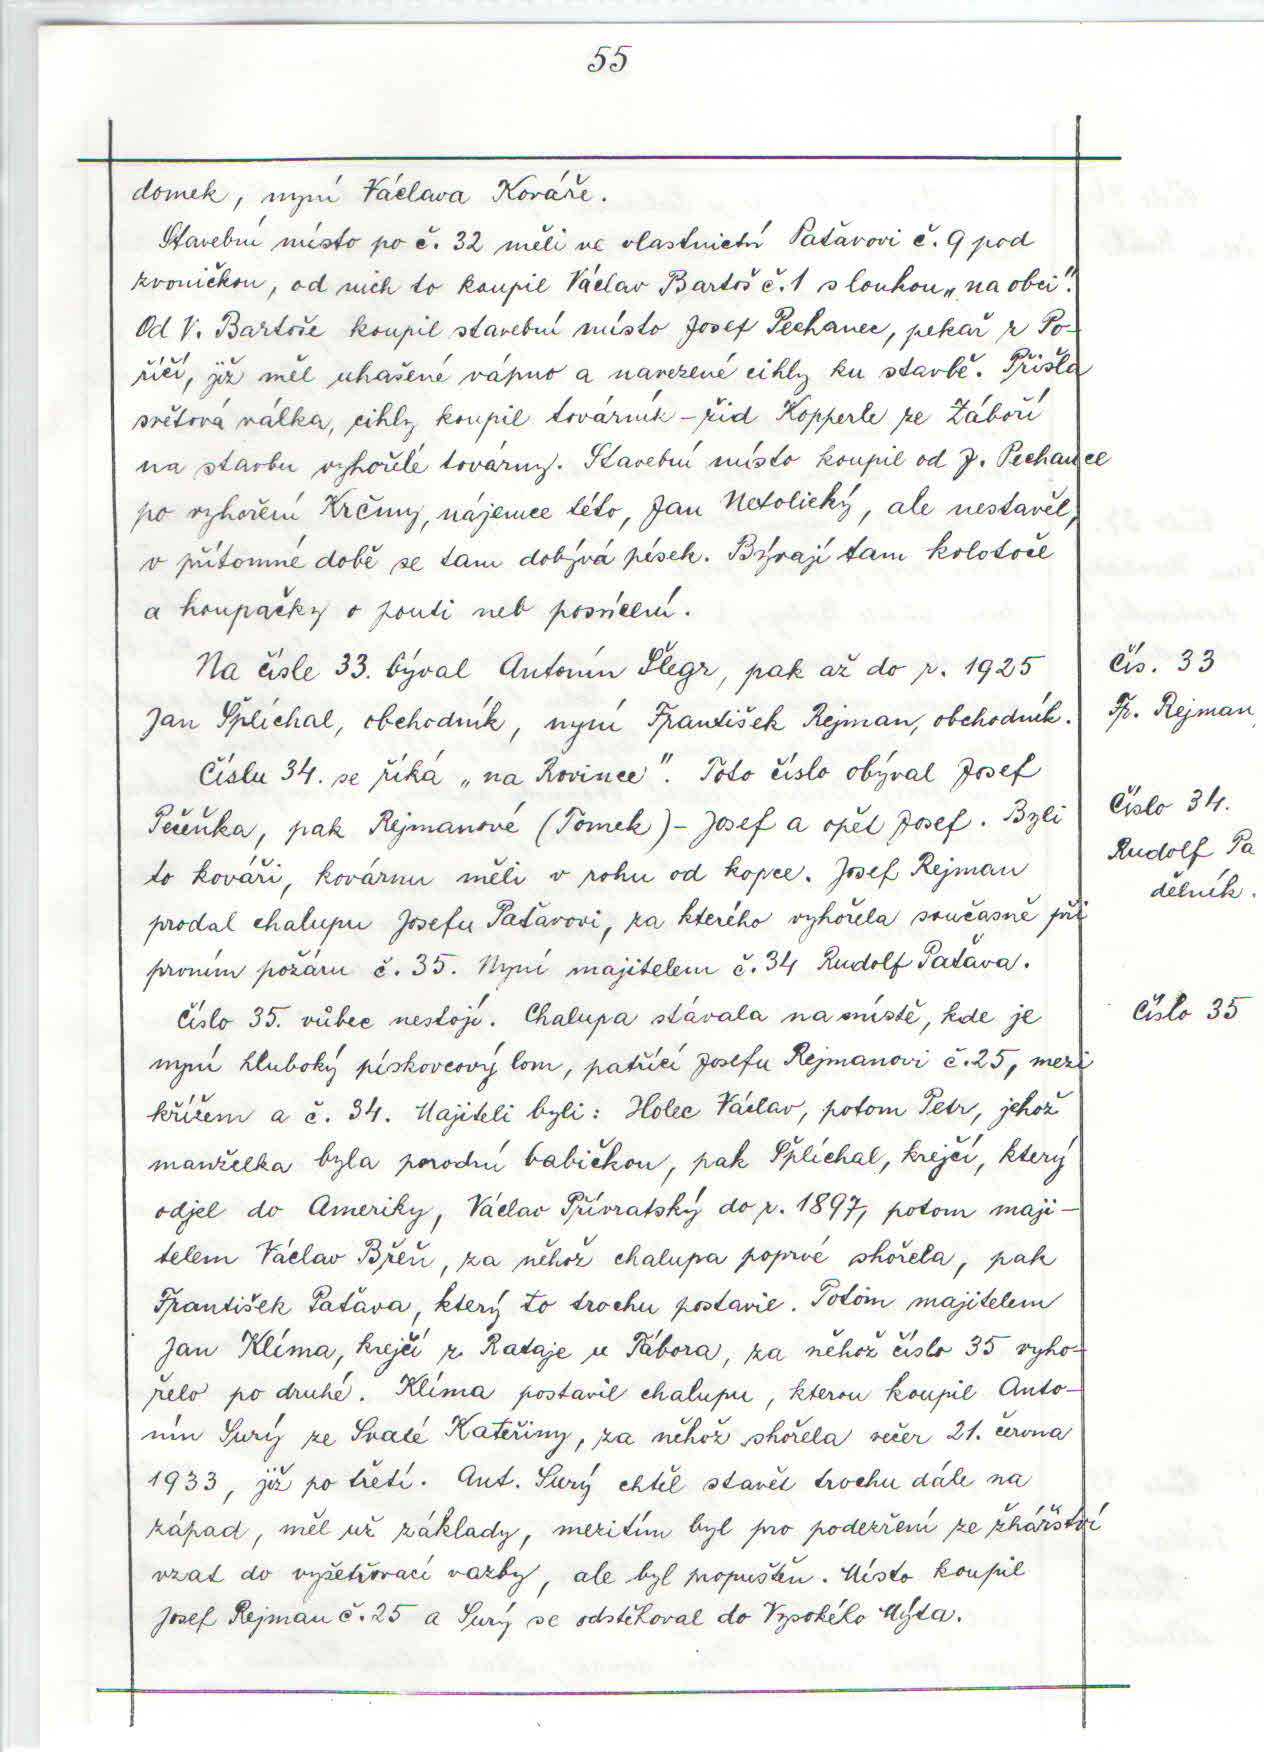 55
domek, nyní Václava Kováře.
Stavební místo po č. 32 měli ve vlastnictví Paťavovi č. 9 pod
zvoničkou, od nich to koupil Václav Bartoš č. 1 s louhou „na obci".
Od V. Bartoše koupil stavební místo Josef Pechanec, pekař z Po-
říčí, již měl uhašené vápno a navezené cihly ku stavbě. Přišla
světová válka, cihly koupil továrník - žid Kopperle ze Záboří
na stavbu vyhořelé továrny. Stavební místo koupil od J. Pechance
po vyhoření Krčmy, nájemce této, Jan Netolický, ale nestavěl,
v přítomné době se tam dobývá písek. Bývají tam kolotoče
a houpačky o pouti neb posvícení.
Na čísle 33. býval Antonín Šlegr, pak až do r. 1925
Čís. 33
Jan Šplíchal, obchodník, nyní František Rejman, obchodník.
Fr. Rejman,
Číslu 34. se říká „na Rovince". Toto číslo obýval Josef
Číslo 34.
Pečeňka, pak Rejmanové (Tomek) - Josef a opět Josef. Byli
Rudolf Pa
to kováři, kovárnu měli v rohu od kopce. Josef Rejman
dělník.
prodal chalupu Josefu Paťavovi, za kterého vyhořela současně při
prvním požáru č. 35. Nyní majitelem č. 34 Rudolf Paťava.
Číslo 35. vůbec nestojí. Chalupa stávala na místě, kde je
Číslo 35
nyní hluboký pískovcový lom, patřící Josefu Rejmanovi č. 25, mezi
křížem a č. 34. Majiteli byli: Holec Václav, potom Petr, jehož
manželka byla porodní babičkou, pak Šplíchal, krejčí, který
odjel do Ameriky, Václav Přívratský do r. 1897, potom maji-
telem Václav Břeň, za něhož chalupa poprvé shořela, pak
František Paťava, který to trochu postavil. Potom majitelem
Jan Klíma, krejčí z Rataje u Tábora, za něhož číslo 35 vyho-
řelo po druhé. Klíma postavil chalupu, kterou koupil Anto-
nín Surý ze Svaté Kateřiny, za něhož shořela večer 21. června
1933, již po třetí. Ant. Surý chtěl stavět trochu dále na
západ, měl už základy, mezitím byl pro podezření ze žhářství
vzat do vyšetřovací vazby, ale byl propuštěn. Místo koupil
Josef Rejman č. 25 a Surý se odstěhoval do Vysokého Mýta.